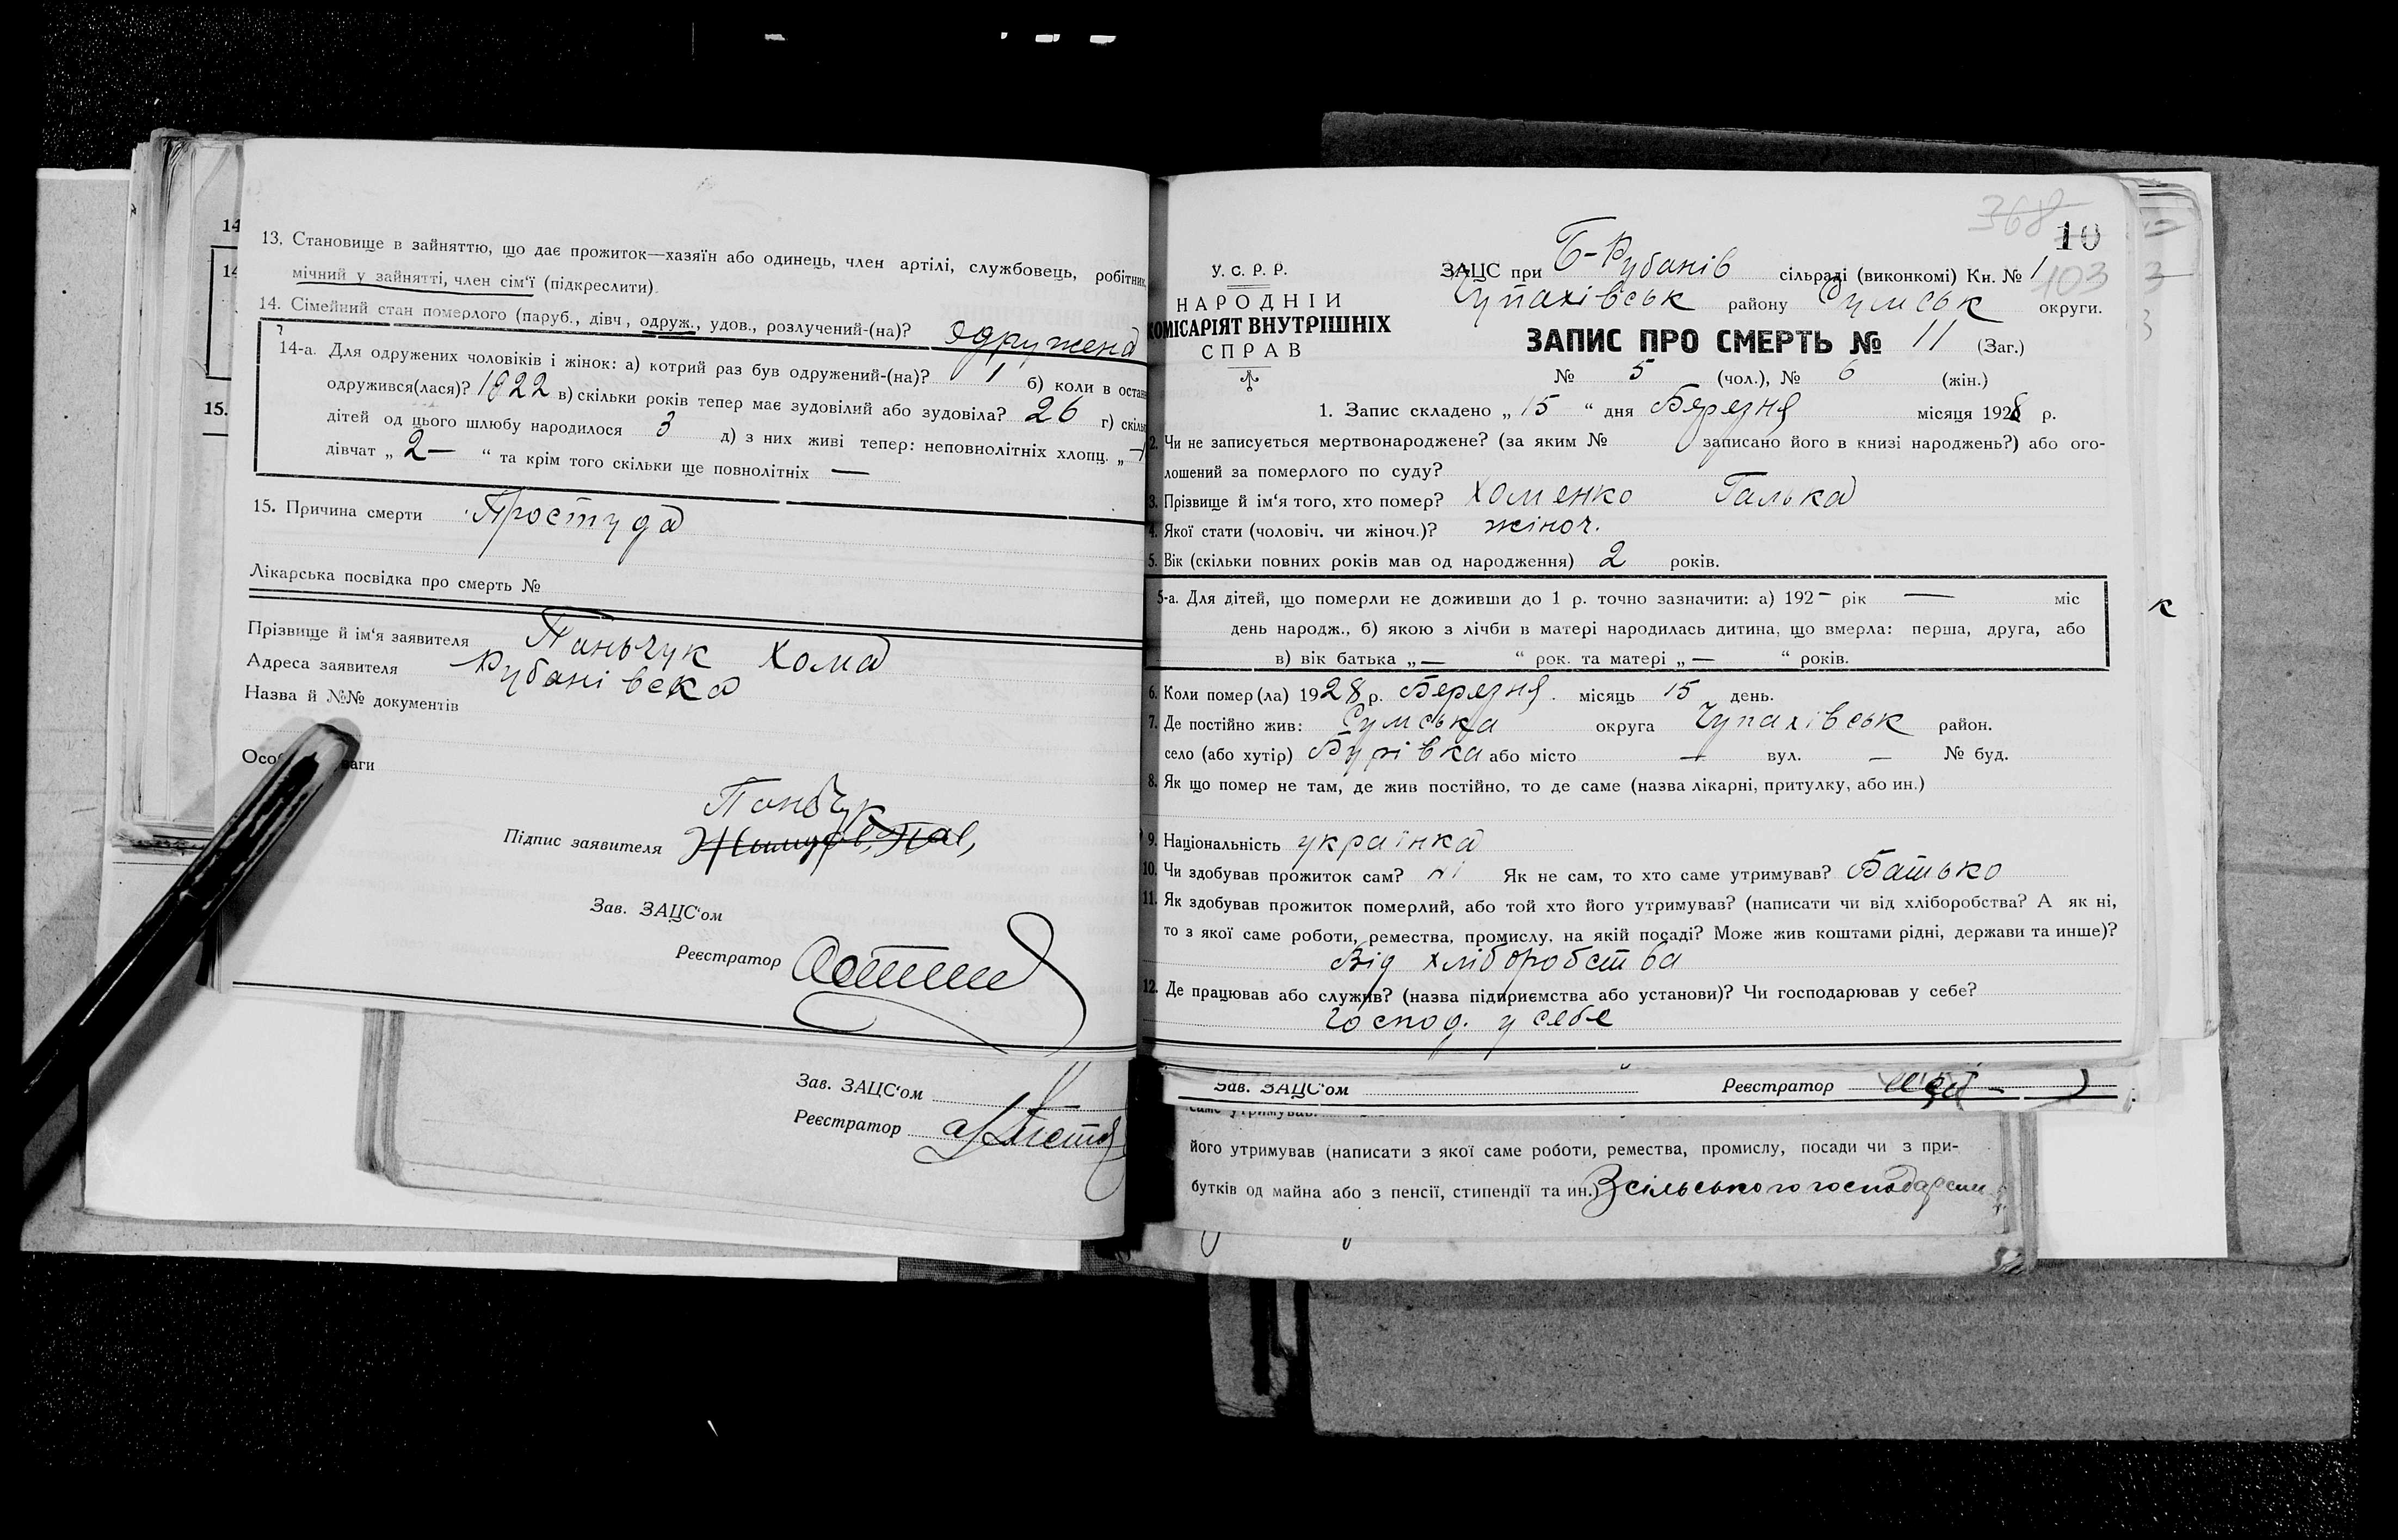 13. Становище в зайняттю, що дає прожиток—хазяїн або одинець, член артілі, службовець, робітник,
мічний у зайнятті, член сім'ї (підкреслити).
14. Сімейний стан померлого (паруб., дівч., одруж., удов., розлучений-(на)? одружена
14-а. Для одружених чоловіків і жінок: а) котрий раз був одружений-(на)? 1 б) коли в остан
одружився(лася)? 1922 в) скільки років тепер має зудовілий або зудовіла? 26 г) скіль
дітей од цього шлюбу народилося 3 д) з них живі тепер: неповнолітніх хлопц. „
дівчат „ 2— “ та крім того скільки ще повнолітніх —
15. Причина смерти Простуда
Лікарська посвідка про смерть №
Прізвище й ім'я заявителя Паньчук Хома
Адреса заявителя Рубанівка
Назва й №№ документів
Осо ваги
Паньчук
Підпис заявителя
Зав. ЗАЦС'ом
Реєстратор
Зав. ЗАЦС'ом
Реєстратор
14
14
15.
368
10
103
У. С. Р. Р.
НАРОДНІЙ
КОМІСАРІЯТ ВНУТРІШНІХ
СПРАВ
ЗАЦС при Б-Рубанів сільраді (виконкомі) Кн. № 1
Чупахівськ району Сумськ округи.
ЗАПИС ПРО СМЕРТЬ № 11 (Заг.)
№ 5 (чол.), № 6 (жін.)
1. Запис складено „ 15 “ дня Березня місяця 1928 р.
2. Чи не записується мертвонароджене? (за яким № записано його в книзі народжень?) або ого-
лошений за померлого по суду?
3. Прізвище й ім'я того, хто помер? Хоменко Галька
4. Якої стати (чоловіч. чи жіноч.)? жіноч.
5. Вік (скільки повних років мав од народження) 2 років.
5-а. Для дітей, що померли не доживши до 1 р. точно зазначити: а) 192— рік — міс
день народж., б) якою з лічби в матері народилась дитина, що вмерла: перша, друга, або
в) вік батька „ — “ рок. та матері „ — “ років.
6. Коли помер(ла) 1928 р. Березня місяць 15 день.
7. Де постійно жив: Сумська округа Чупахівськ район.
село (або хутір) або місто — вул. — № буд.
8. Як що помер не там, де жив постійно, то де саме (назва лікарні, притулку, або ин.)
9. Національність українка
10. Чи здобував прожиток сам? ні Як не сам, то хто саме утримував? Батько
11. Як здобував прожиток померлий, або той хто його утримував? (написати чи від хліборобства? А як ні,
то з якої саме роботи, ремества, промислу, на якій посаді? Може жив коштами рідні, держави та инше)?
Від хліборобства
12. Де працював або служив? (назва підприємства або установи)? Чи господарював у себе?
Господ. у себе
Зав. ЗАЦС'ом Реєстратор
саме утримував
його утримував (написати з якої саме роботи, ремества, промислу, посади чи з при-
бутків од майна або з пенсії, стипендії та ин.) З сільського господарств
к